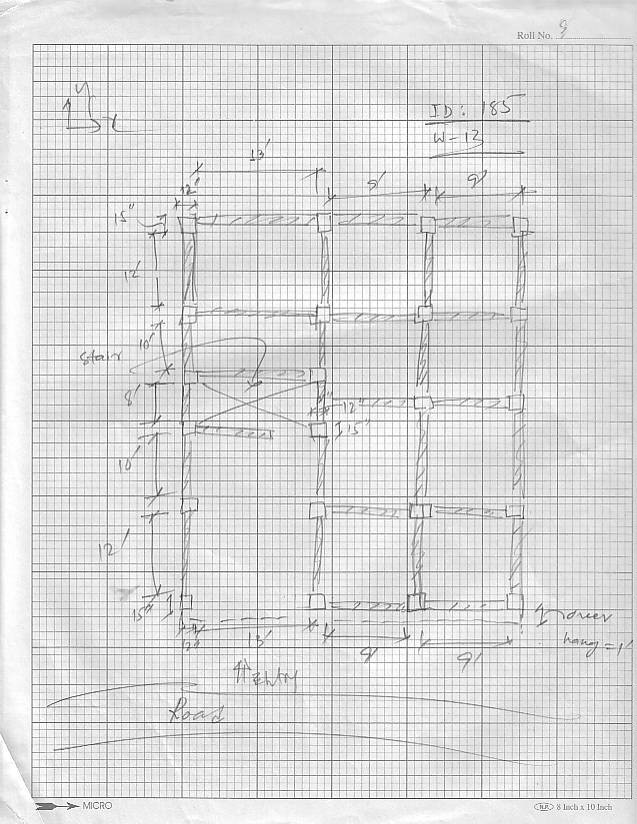 Roll No. 9
y
x
ID: 185
W-13
13'
9'
9'
12"
15"
12'
10'
stair
8'
12"
15"
10'
12'
15"
12"
13'
9'
9'
over
hang = 1'
Entry
Road
MICRO
N.R. 8 Inch x 10 Inch